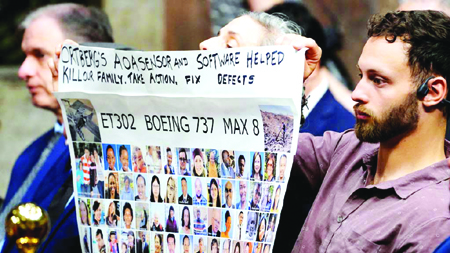 ORTBERG'S AOASENSOR AND SOFTWARE HELPED
KILL OUR FAMILY. TAKE ACTION. FIX DEFECTS
ET302 BOEING 737 MAX 8